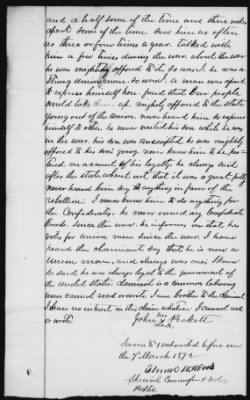 and a half some of the time and three miles
apart some of the time. See him as often
as three or four times a year. talked with
him a few times during the war about the war
he was mightily opposed to it, so was I. he was a
strong Union man, so was I. a man was afraid
to express himself how freed that Our people
would take up. mighty opposed to the state
going out of the union. never heard him express
himself to others, he never visited his son while he was
in the war, his son was conscripted he was mightily
opposed to his son's going. never knew him to be
on account of his loyalty, he always said
after the state went out, that it was a great folly
never heard him say anything in favor of the
rebellion. I never knew him to do anything for
the Confederates, he never owned any Confederate
Bonds. Since the war he informs me that he
votes for union men since the war. I have
heard the claimant say that he is now a
union man, and always was one.
he said he was always loyal to the government of
the United States. Claimant is a common laboring
man cannot read or write. I am brother to the Claimant
I have no interest in this claim whatever I cannot read
or write
John his mark Peckett
Sworn & subscribed before me
the 7" March 1872
Special Commissioner & Notary
Public